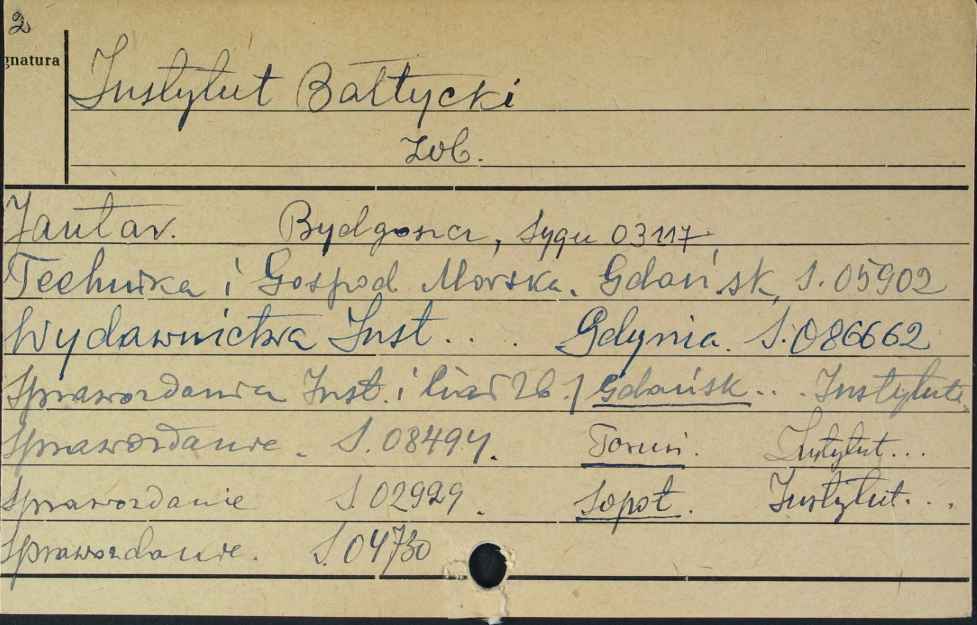 2
gnatura
Instytut Bałtycki
zob.
Jantar. Bydgoszcz, Sygn 03117
Technika i Gospod Morska. Gdańsk, S. 05902
Wydawnictwa Inst... Gdynia. S. 086662
Sprawozdania Inst. i Gdańsk... Instytut
Sprawozdanie. S. 08494. Toruń. Instytut...
Sprawozdanie S 02929. Sopot. Instytut...
Sprawozdanie. S. 04730